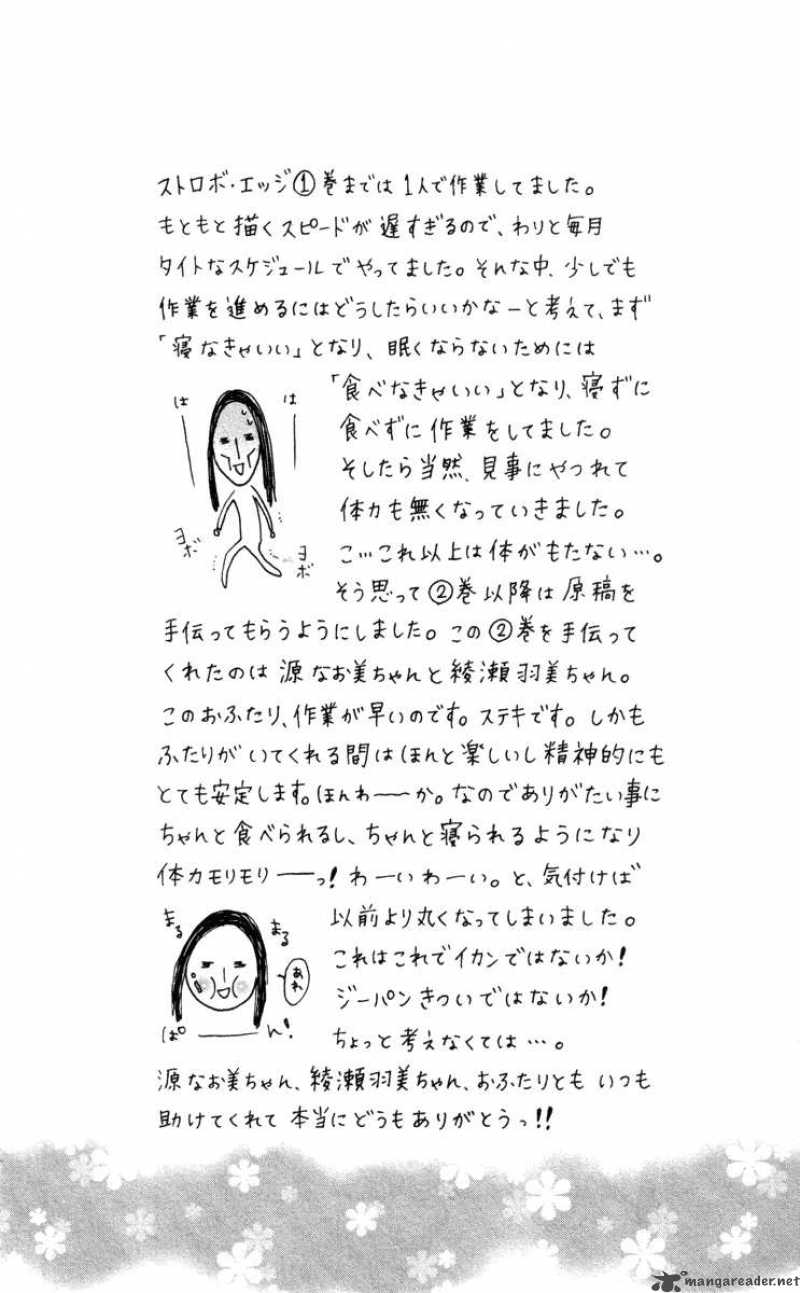 ストロボ・エッジ①巻までは1人で作業してました。
もともと描くスピードが遅すぎるので、わりと毎月
タイトなスケジュールでやってました。それな中、少しでも
作業を進めるにはどうしたらいいかなーと考えて、まず
「寝なきゃいい」となり、眠くならないためには
「食べなきゃいい」となり、寝ずに
食べずに作業をしてました。
そしたら当然、見事にやつれて
体力も無くなっていきました。
こ…これ以上は体がもたない…。
そう思って②巻以降は原稿を
は
は
ヨボ
ヨボ
手伝ってもらうようにしました。この②巻を手伝って
くれたのは源なお美ちゃんと綾瀬羽美ちゃん。
このおふたり、作業が早いのです。ステキです。しかも
ふたりがいてくれる間はほんと楽しいし精神的にも
とても安定します。ほんわーーか。なのでありがたい事に
ちゃんと食べられるし、ちゃんと寝られるようになり
体力モリモリーーっ!わーいわーい。と、気付けば
以前より丸くなってしまいました。
これはこれでイカンではないか!
ジーパンきついではないか!
ちょっと考えなくては…。
まる
まる
あれ
ぱーーん!
源なお美ちゃん、綾瀬羽美ちゃん、おふたりとも いつも
助けてくれて 本当にどうもありがとうっ!!
mangareader.net